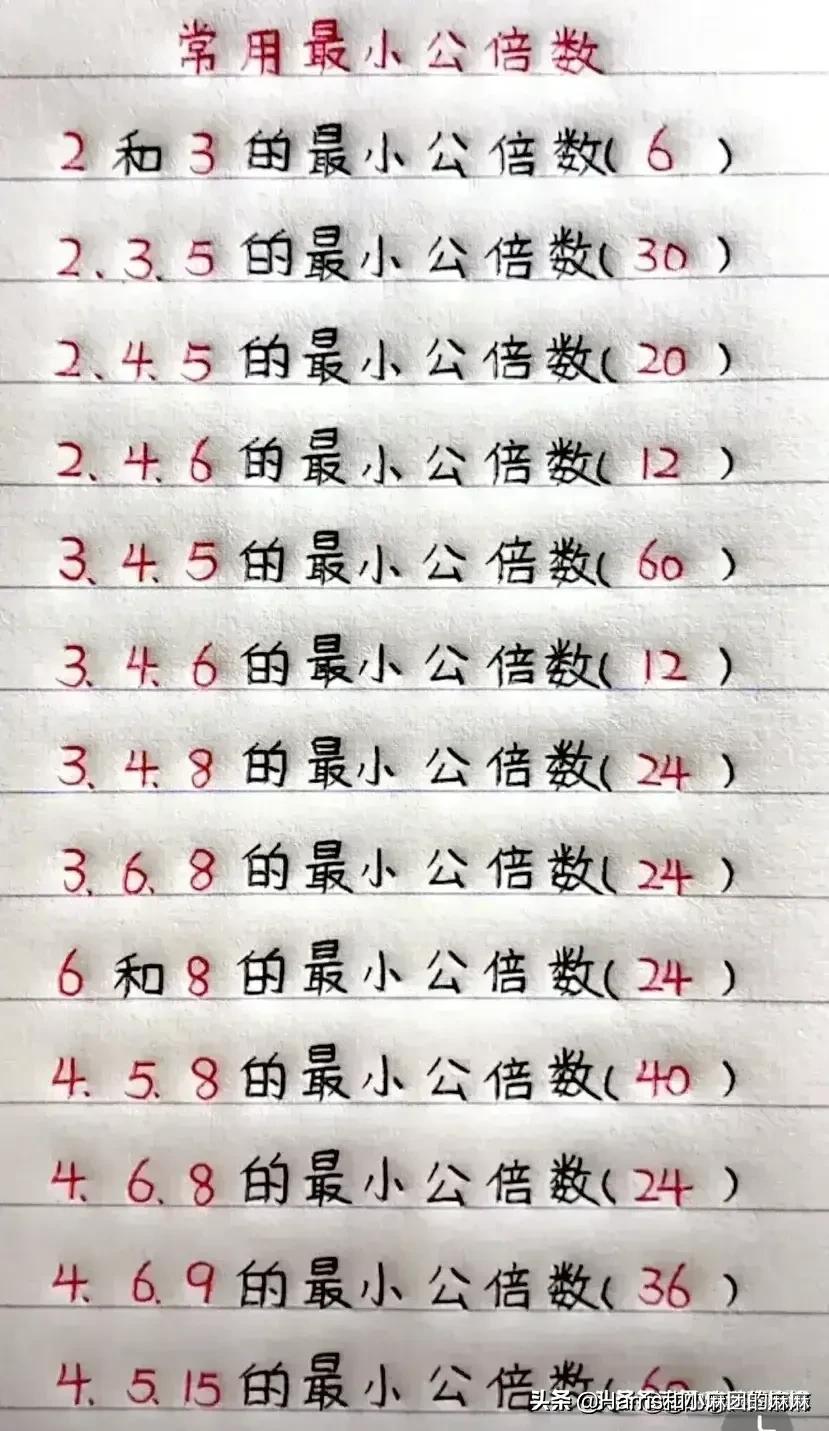 常用最小公倍数
2和3的最小公倍数(6)
2、3、5的最小公倍数(30)
2、4、5的最小公倍数(20)
2、4、6的最小公倍数(12)
3、4、5的最小公倍数(60)
3、4、6的最小公倍数(12)
3、4、8的最小公倍数(24)
3、6、8的最小公倍数(24)
6和8的最小公倍数(24)
4、5、8的最小公倍数(40)
4、6、8的最小公倍数(24)
4、6、9的最小公倍数(36)
4、5、15的最小公倍数(60)
头条